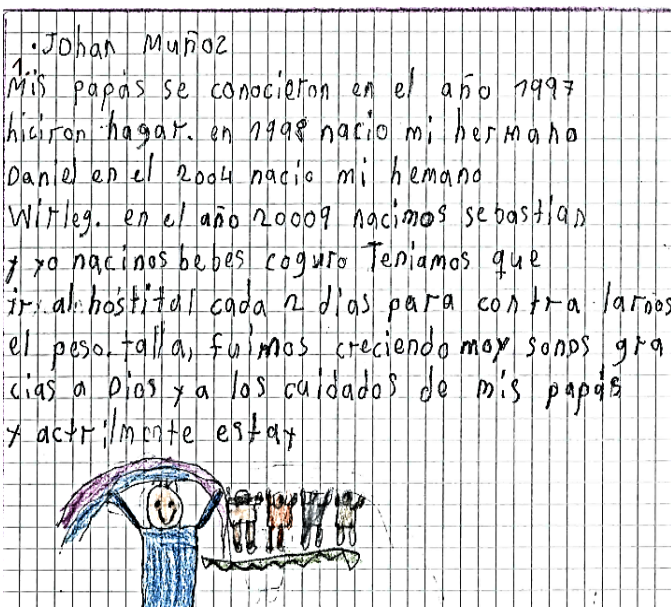 ·Johan Muñoz
1.
Mis papás se conocieron en el año 1997
hiciron hagar. en 1998 nacio mi hermano
Daniel en el 2004 nacio mi hemano
Wirleg. en el año 20009 nacimos sebastian
y yo nacinos bebes coguro Teniamos que
ir al hostital cada 2 dias para contralarnos
el peso. talla, fuimos creciendo moy sonos gra
cias a Dios y a los cuidados de mis papás
y estay